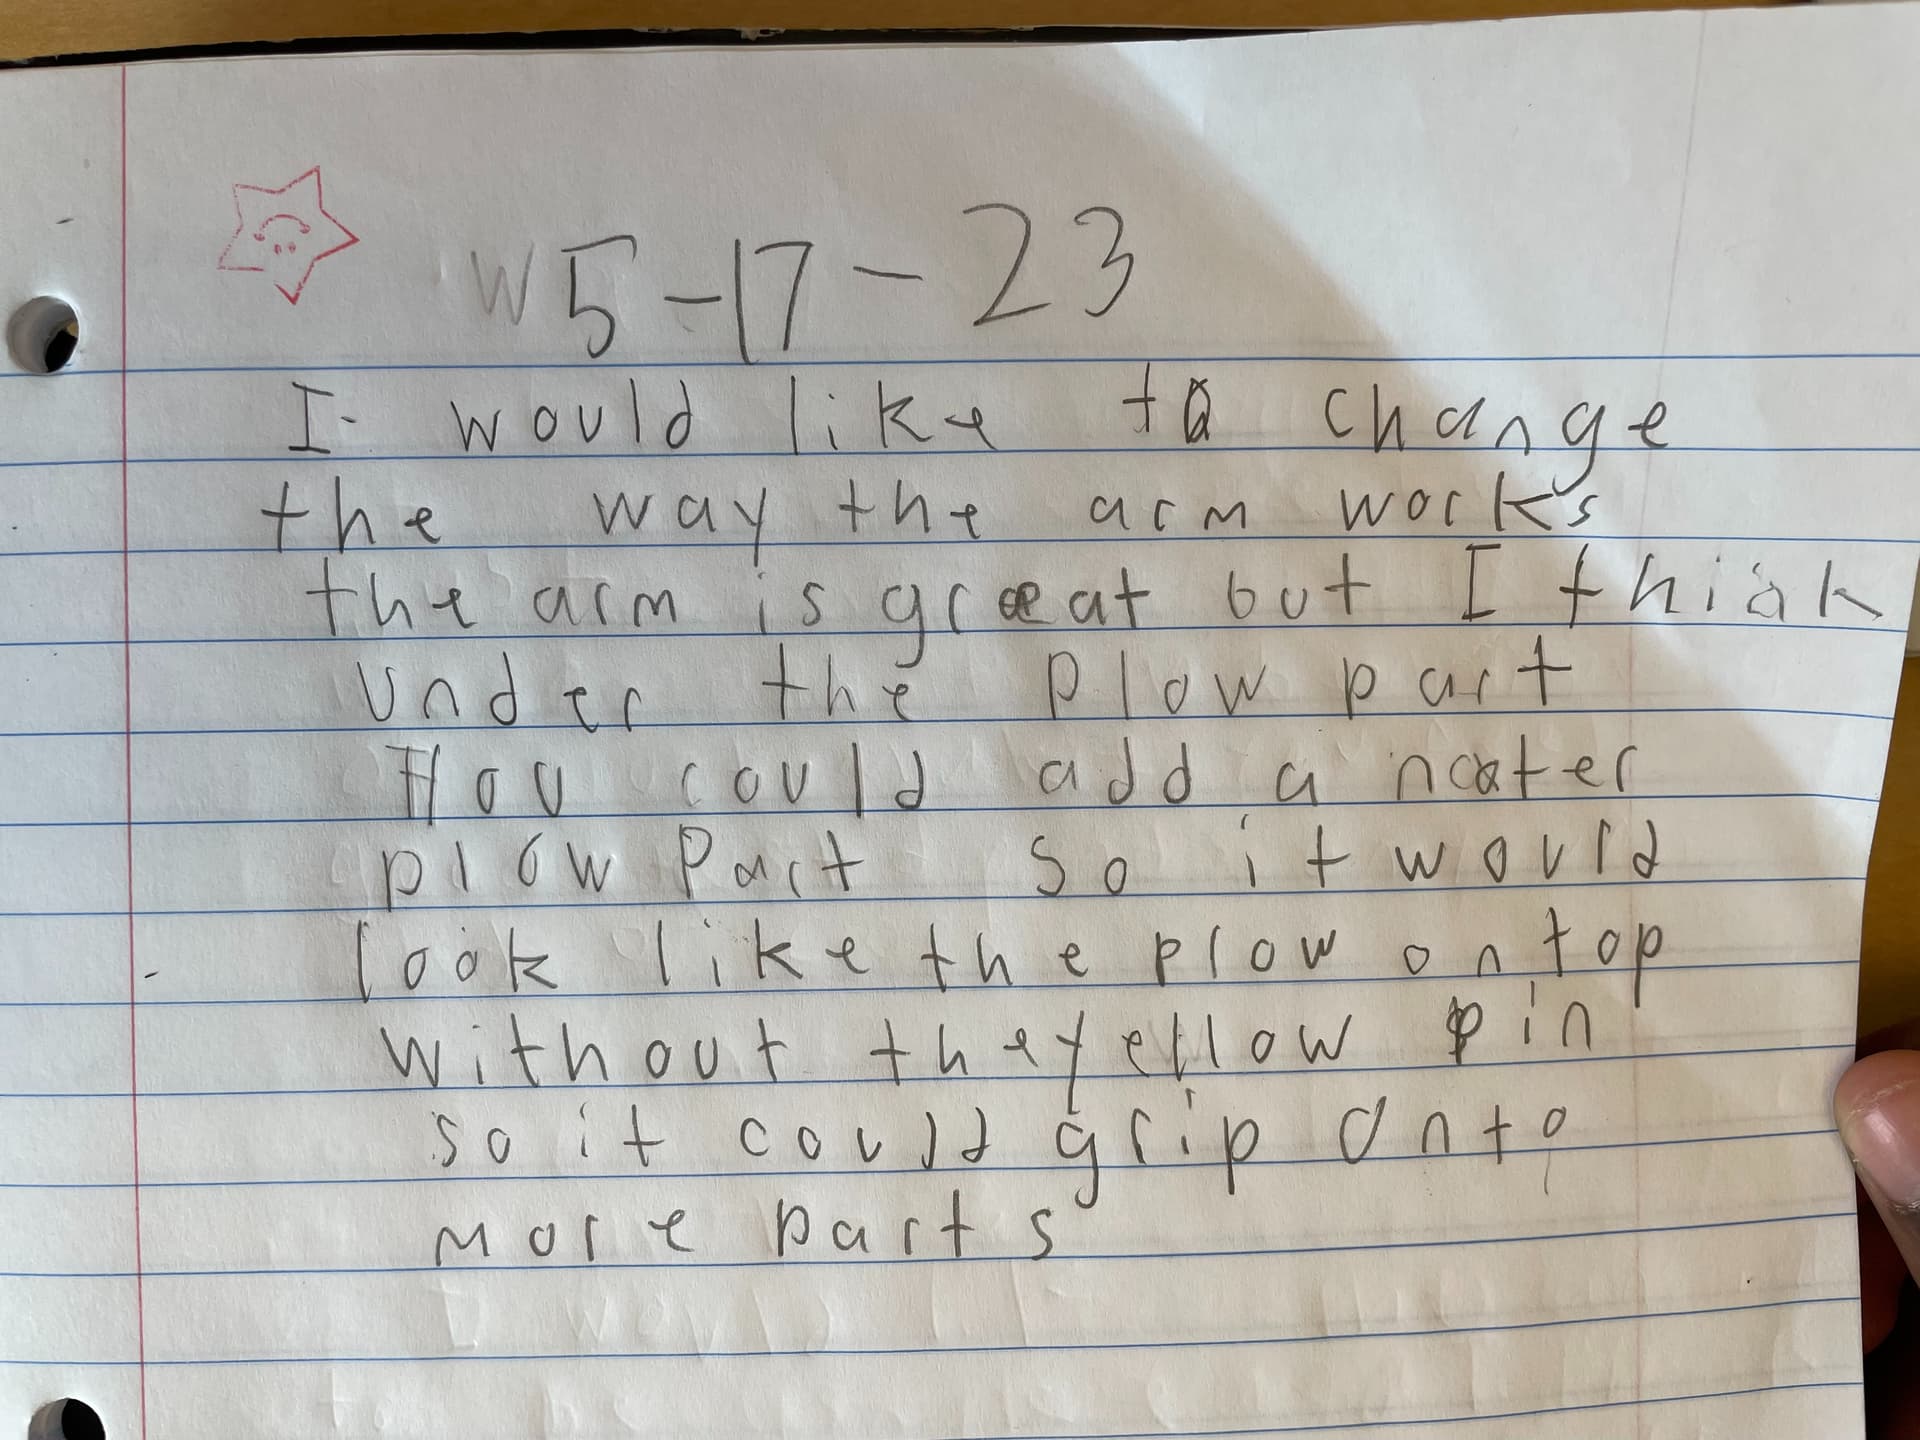 W 5-17-23
I would like to change
the way the arm works
the arm is great but I think
under the plow part
You could add a noter
plow Part so it would
look like the plow on top
without the yellow pin
so it could grip onto
more parts